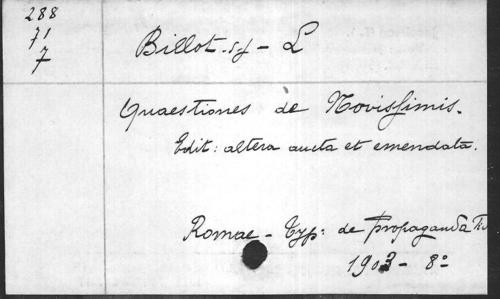 288
71
7
Billot. sj - L
Quaestiones de Novissimis.
Edit: altera aucta et emendata.
Romae - Typ: de propaganda
1903 - 8º